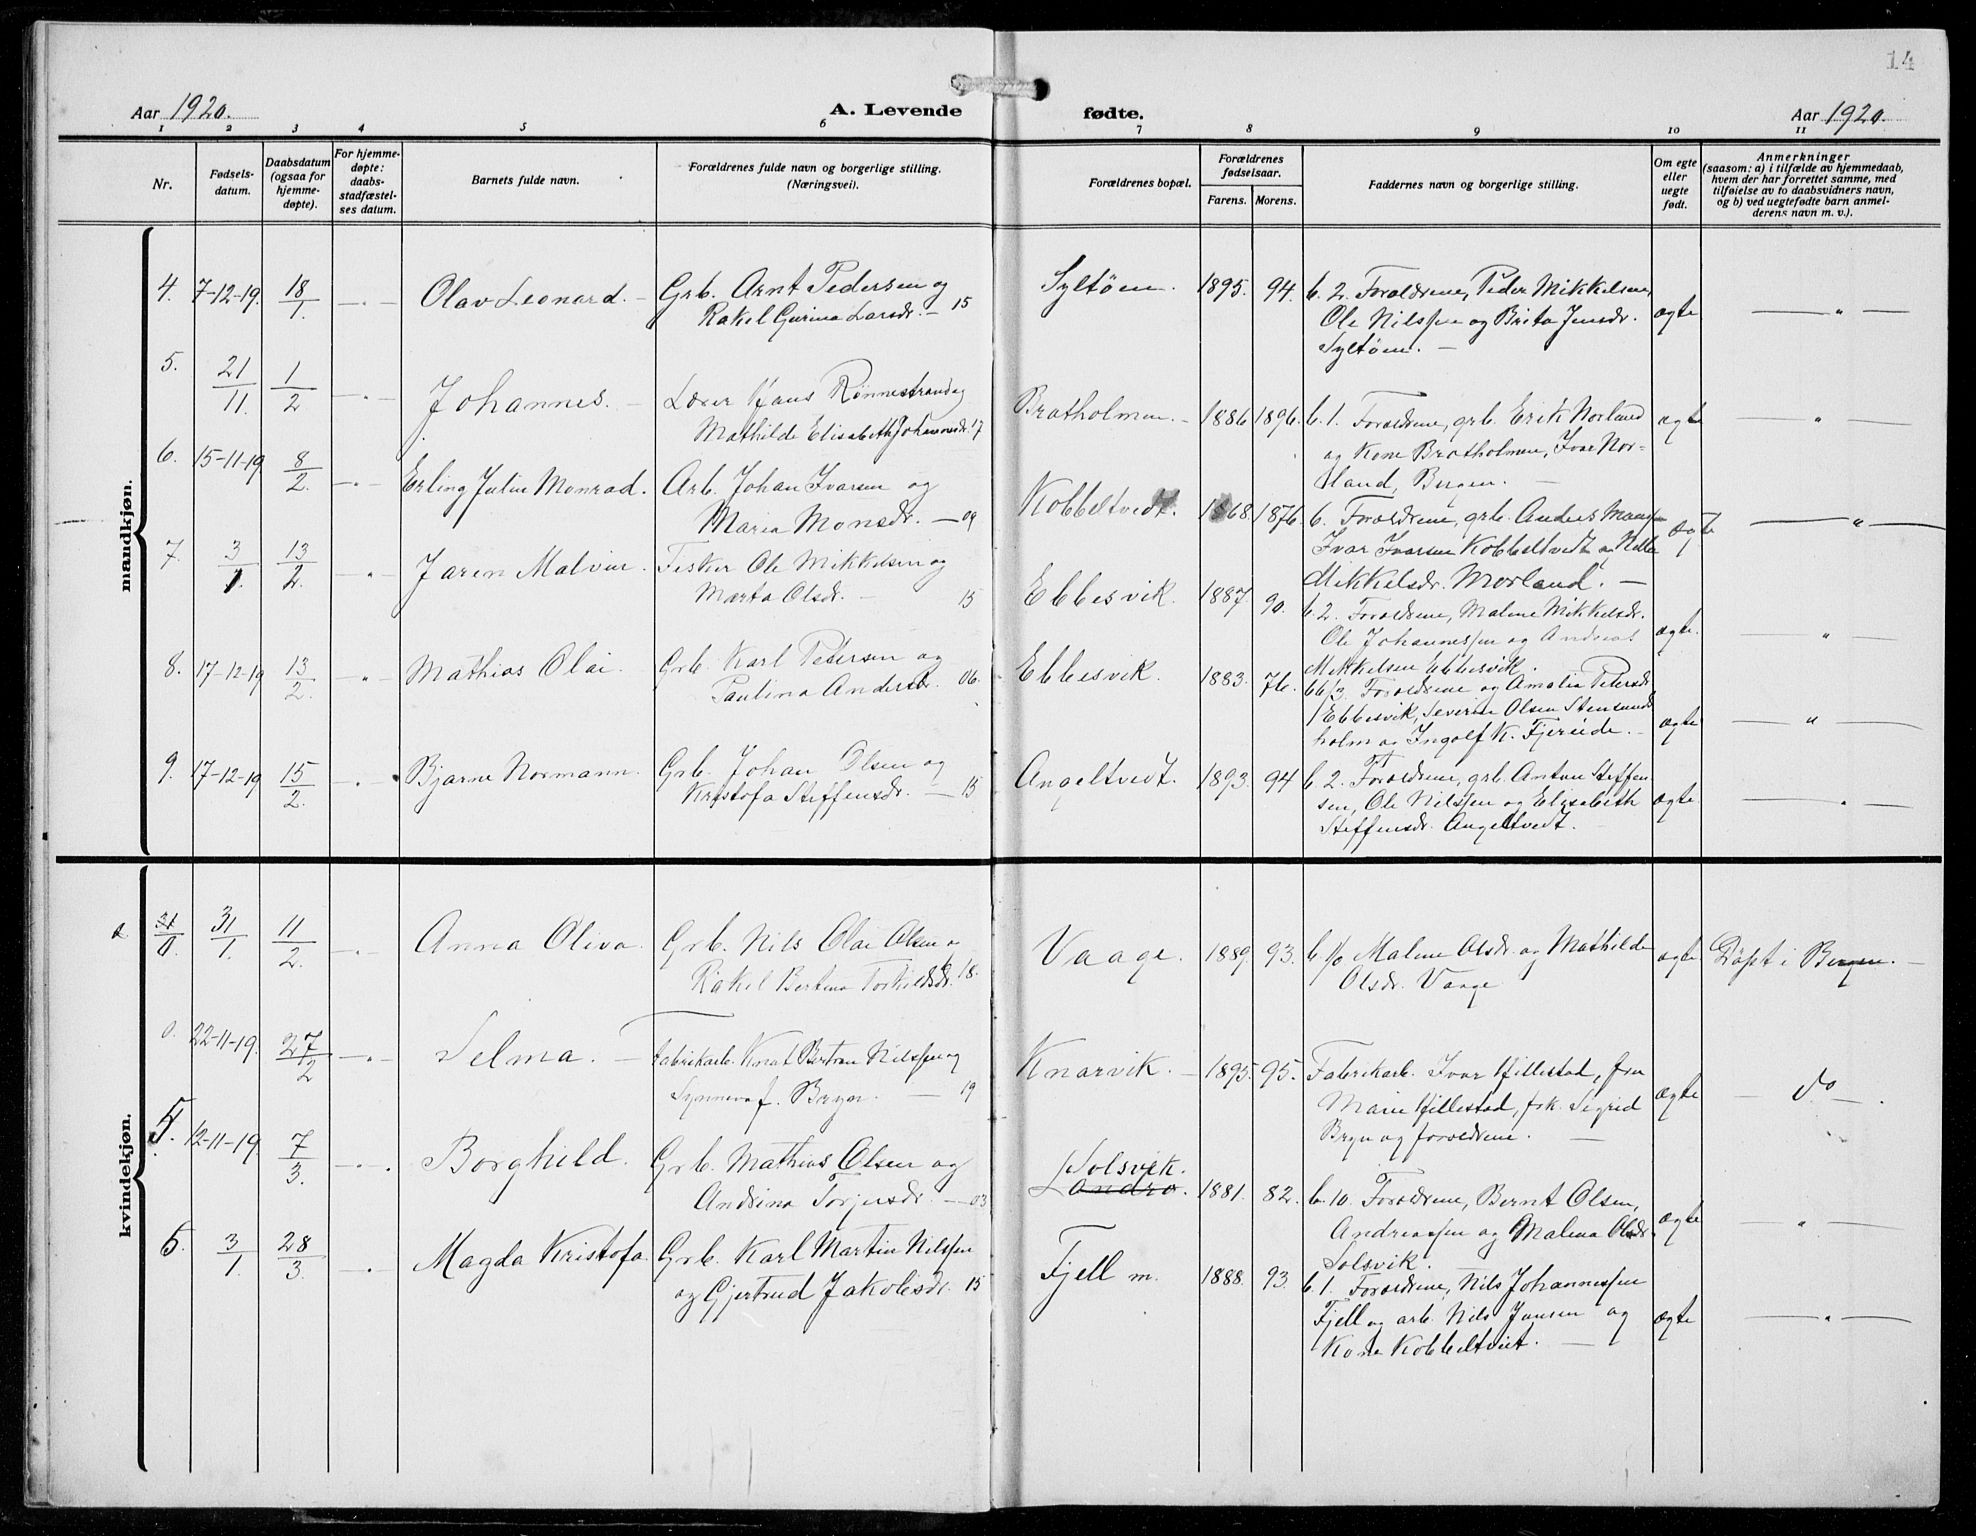 14
Aar 1920.
A. Levende
fødte.
Aar 1920.
1 2 3 4 5 6 7 8 9 10 11
Nr.
Fødsels-
datum.
Daabsdatum
(ogsaa for
hjemme-
døpte).
For hjemme-
døpte:
daabs-
stadfæstel-
ses datum.
Barnets fulde navn.
Forældrenes fulde navn og borgerlige stilling.
(Næringsvei).
Forældrenes bopæl.
Forældrenes
fødselsaar.
Farens. Morens.
Faddernes navn og borgerlige stilling.
Om egte
eller
uegte
født.
Anmerkninger
(saasom: a) i tilfælde av hjemmedaab,
hvem der har forrettet samme, med
tilføielse av to daabsvidners navn,
og b) ved uegtefødte barn anmel-
derens navn m. v.).
mandkjøn.
4. 7-12-19. 18/1 — " — Olav Leonard. — Grb. Arnt Pedersen og
Rakel Gurina Larsdr. — 15
Syltøen. 1895. 94. b. 2. Forældrene, Peder Mikkelsen,
Ole Nilssen og Brita Jensdr.
Syltøen. —
ægte — " —
5. 21/11. 1/2 — " — Johannes. — Hans Rønnestrand og
Mathilde Elisabeth Johannesdr. 17
Bratholmen. — 1886 1896. b. 1. Forældrene, grb. Erik Norland
og Kone Bratholmen, Ivar Nor-
land, Bergen. —
ægte "
6. 15-11-19 8/2. — " — Erling Julin Monrad. Arb. Johan Ivarsen og
Maria Monsdr. — 09
Kobbeltvedt. 1868. 1876. b. Forældrene, grb. Anders
Ivar Ivarsen Kobbeltvedt og
Mikkelsdr. Morland. —
ægte — " —
7. 3/1. 13/2. — " — Jaren Malvin. Fisker Ole Mikkelsen og
Marta Olsdr. — 15
Ebbesvik. 1887. 90. b. 2. Forældrene, Malene Mikkelsdr.
Ole Johannessen og Andreas
Mikkelsen Ebbesvik.
ægte. — " —
8. 17-12-19 13/2. — " — Mathias Olai. Grb. Karl Petersen og
Paulina Andersdr. 06.
Ebbesvik. 1883. 76. Forældrene og Amalia Petersdr.
Ebbesvik, Severin Olsen Stensund
holm og Ingolf K. Fjereide. —
ægte — " —
9. 17-12-19 15/2. — " — Bjarne Normann. Grb. Johan Olsen og
Kristofa Steffensdr. — 15
Angeltvedt. 1893. 94 b. 2. Forældrene, grb. Anton Steffen-
sen, Ole Nilssen og Elisabeth
Steffensdr. Angeltvedt. —
ægte — " —
kvindekjøn.
31/1. 11/2. — " — Anna Oliva. Grb. Nils Olai Olsen og
Rakel Bertina Torkildsdr. 18.
Vaage. 1889. 93. b. 10 Malene Olsdr. og Mathilde
Olsdr. Vaage
ægte Døpt i Bergen. —
0. 22-11-19. 27/2 — " — Selma. — Fabrikarb. Knut Bertran Nilssen og
Synneva f. Bryn. — 19
Knarvik. — 1895. 95. Fabrikarb. Ivar Hillestad, fru
Marie Hillestad, frk. Sigrid
Bryn og forældrene. —
ægte — do —.
5. 12-11-19. 7/3. — " — Borghild. Grb. Mathias Olsen og
Andrina Torjersdr. — 03
Solsvik.
Landro. 1881. 82. b. 10. Forældrene, Bernt Olsen,
Andreassen og Malena Olsdr.
Solsvik.
ægte — " —
6. 3/1. 28/3. — " — Magda Kristofa. Grb. Karl Martin Nilssen
og Gjertrud Jakobsdr. 15
Fjell m. 1888. 93. b. 1. Forældrene, Nils Johannessen
Fjell og arb. Nils Jansen og
Kone Kobbeltveit. —
ægte — " —